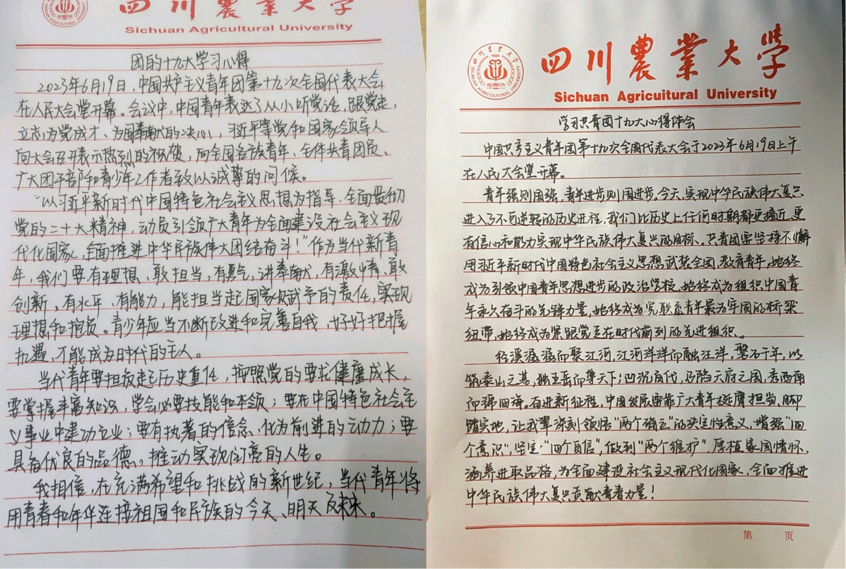 四川農業大学
Sichuan Agricultural University
团的十九大学习心得
2023年6月19日,中国共产主义青年团第十九次全国代表大会
在人民大会堂开幕。会议中,中国青年表达了从小听党话、跟党走,
立志为党成才、为国奉献的决心,习近平等党和国家领导人
向大会召开表示热烈的祝贺,向全国各族青年、全体共青团员、
广大团干部和青少年工作者致以诚挚的问候。
"以习近平新时代中国特色社会主义思想为指导,全面贯彻
党的二十大精神,动员引领广大青年为全面建设社会主义现
代化国家、全面推进中华民族伟大团结奋斗!"作为当代新青
年,我们要有理想、敢担当,有勇气,讲奉献,有激情,敢
创新,有水平,有能力,能担当起国家赋予的责任,实现
理想和抱负。青少年应当不断改进和完善自我,好好把握
机遇,才能成为时代的主人。
当代青年要担负起历史重任,按照党的要求健康成长,
要掌握丰富知识,学会必要技能和本领;要在中国特色社会主
义事业中建功立业;要有执著的信念,化为前进的动力;要
具备优良的品德,推动实现闪亮的人生。
我相信,在充满希望和挑战的新世纪,当代青年将
用青春和年华连接祖国和民族的今天、明天及未来。
四川農業大学
Sichuan Agricultural University
学习共青团十九大心得体会
中国共产主义青年团第十九次全国代表大会于2023年6月19日上午
在人民大会堂开幕。
青年强则国强,青年进步则国进步。今天,实现中华民族伟大复兴
进入了不可逆转的历史进程,我们比历史上任何时期都更接近、更
有信心和能力实现中华民族伟大复兴的目标、共青团要坚持不懈
用习近平新时代中国特色社会主义思想武装全团、教育青年,始终
成为引领中国青年思想进步的政治学校,始终成为组织中国青
年永久奋斗的先锋力量,始终成为党联系青年最为牢固的桥梁
纽带,始终成为紧跟党走在时代前列的先进组织。
径溪潺潺而聚江河,江河洋洋而融汪洋,聚石千年,以
筑泰山之基,独五岳而尊天下;凹拢百代,乃蹈天府之国,秀西南
而福田畴。奋进新征程,中国发展要靠广大青年挺膺担当,脚印
踏实地,让我辈深刻领悟"两个确立"的决定性意义,增强"四
个意识"、坚定"四个自信"、做到"两个维护",厚植家国情怀,
涵养进取品格,为全面建设社会主义现代化国家、全面推进
中华民族伟大复兴贡献青春力量!
第 页